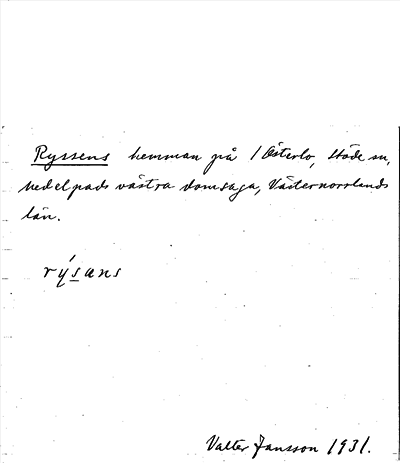 Ryssens hemman på 1 Österlo, Stöde sn,
Medelpads västra domsaga, Västernorrlands
län.
rýsans
Valter Jansson 1931.